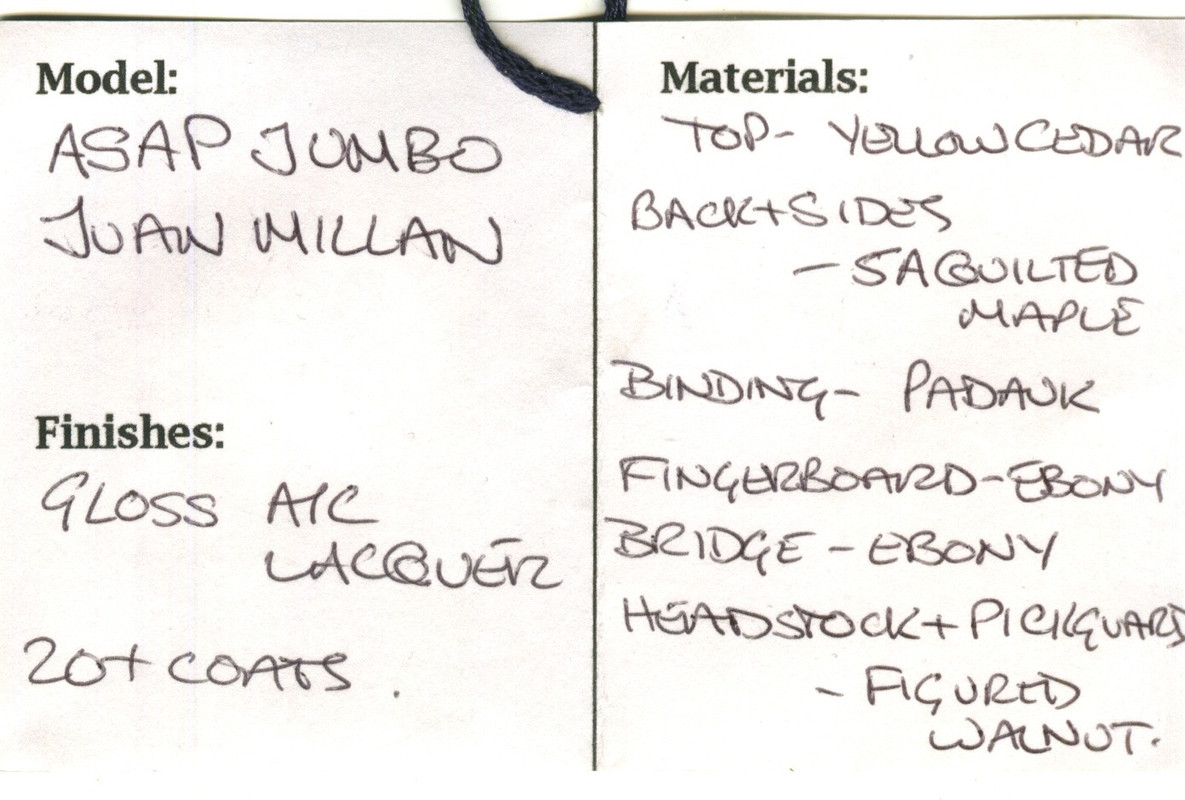 Model:
ASAP JUMBO
JUAN MILLAN
Finishes:
GLOSS A/C
LACQUER
20+ COATS.
Materials:
TOP- YELLOW CEDAR
BACK+SIDES
- 5A QUILTED
MAPLE
BINDING- PADAUK
FINGERBOARD-EBONY
BRIDGE - EBONY
HEADSTOCK+PICKGUARD
- FIGURED
WALNUT.